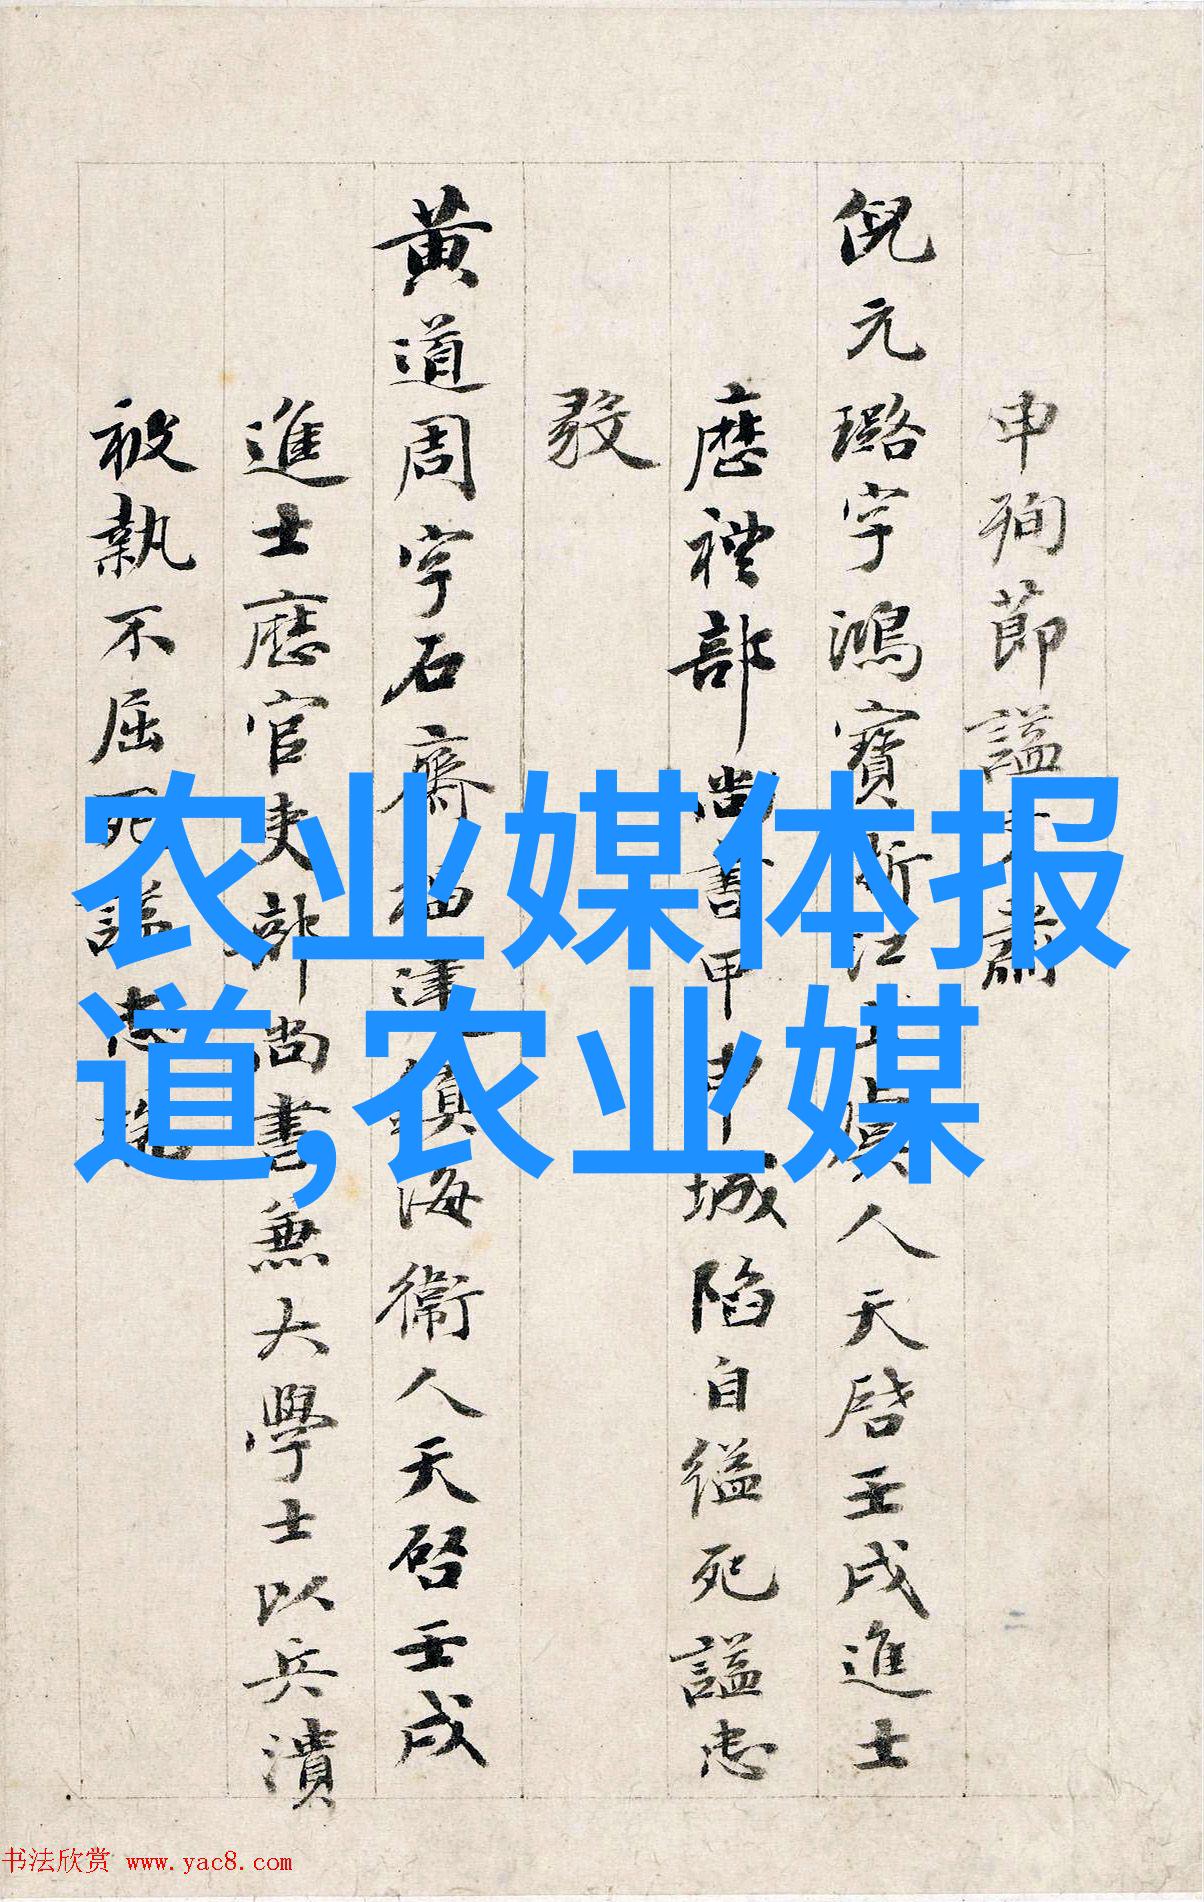 申殉節謚
倪元璐字鴻寶浙江上虞人天啓壬戌進士
歷禮部尚書甲申城陷自縊死謚忠
黄道周字石齋福建鎮海衞人天啓壬戌
進士歷官吏部尚書兼大學士以兵潰
被執不屈死謚忠
农业媒体报
道,农业媒
书法欣赏 www.yac8.com